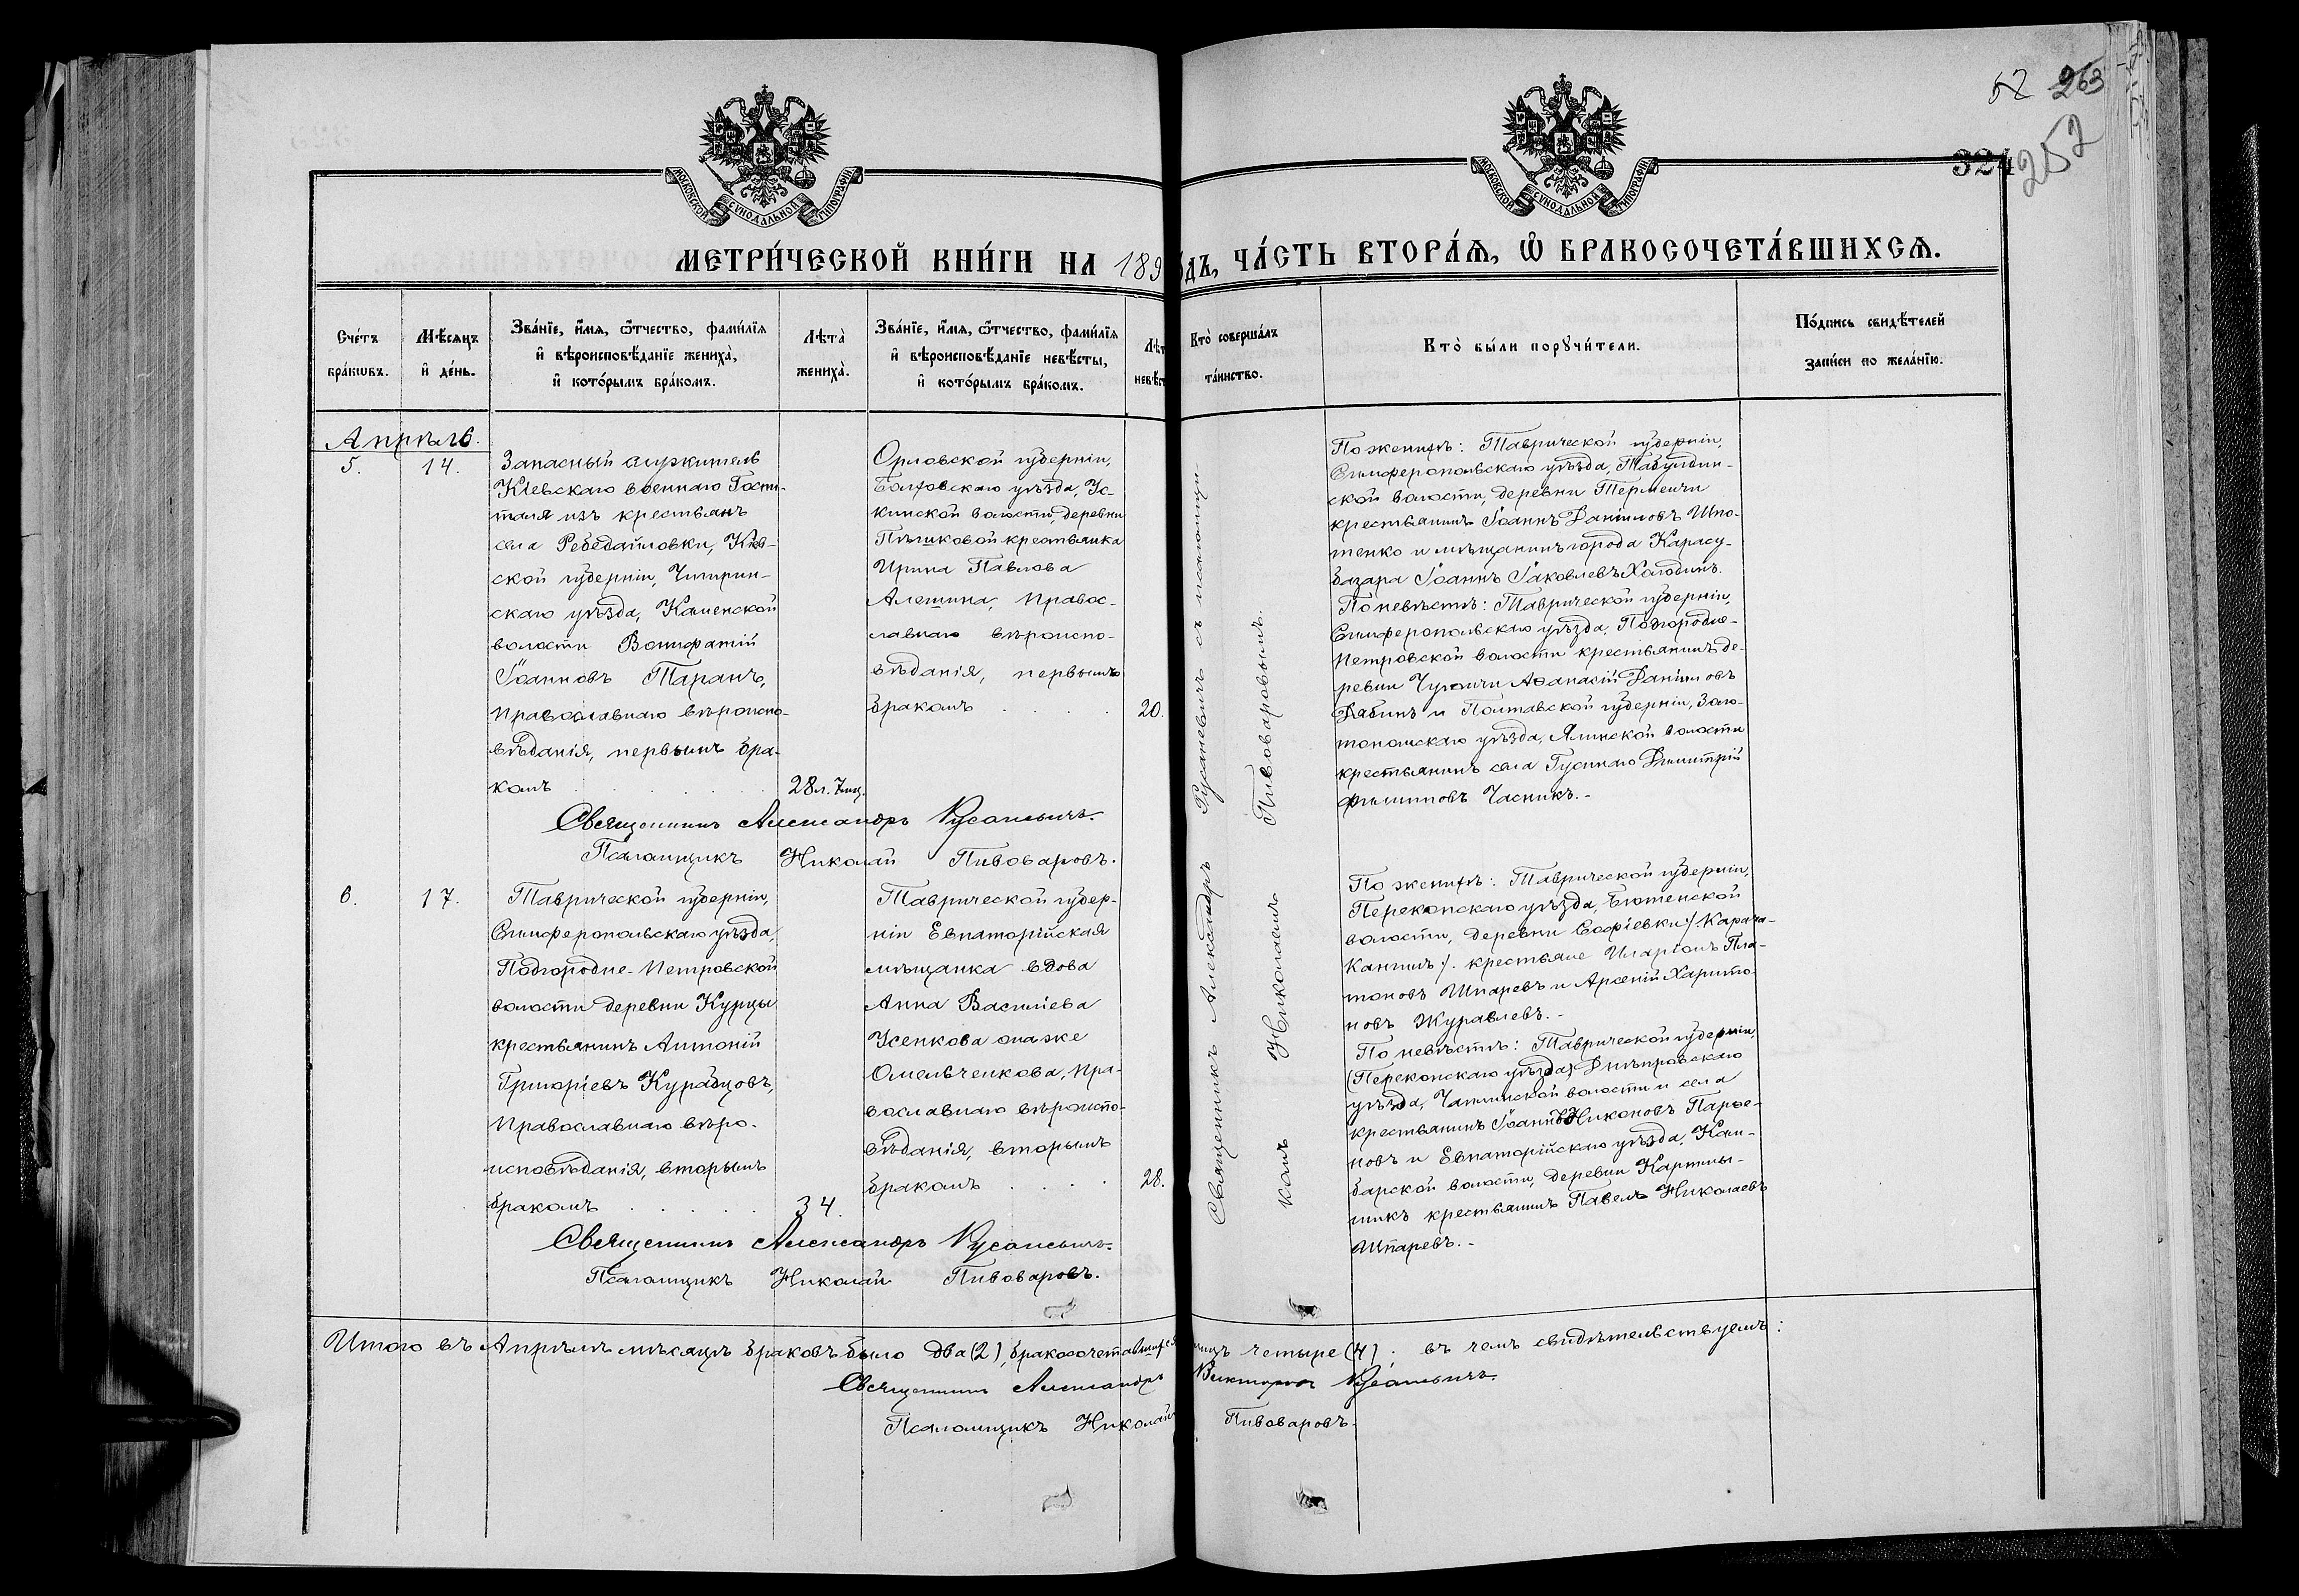 52 263
252
324
МОСКОВСКОЙ СѴНОДАЛЬНОЙ ТИПОГРАФІИ
МОСКОВСКОЙ СѴНОДАЛЬНОЙ ТИПОГРАФІИ
МЕТРИ́ЧЕСКОЙ КНИ́ГИ НА 189 ѻдъ, ЧА́СТЬ ВТОРА́Ѧ, Ѽ БРАКОСОЧЕТА́ВШИХСѦ.
Сче́тъ бра́кѡвъ.
Мѣ́сѧцъ и҆ де́нь.
Зва́нїе, и҆́мѧ, ѻ҆́тчество, фами́лїѧ и҆ вѣроисповѣ́данїе жениха̀, и҆ кото́рымъ бра́комъ.
Лѣ́та̀ жениха̀.
Зва́нїе, и҆́мѧ, ѻ҆́тчество, фами́лїѧ и҆ вѣроисповѣ́данїе невѣ́сты, и҆ кото́рымъ бра́комъ.
Лѣт невѣст
Кто̀ соверша́лъ та́инство.
Кто̀ бы́ли порꙋчи́тели.
По́дпись свидѣ́телей за́писи по жела́нїю.
Апрѣль.
5.
14.
Запасный служитель
Кіевскаго военнаго Госпи-
таля изъ крестьянъ
села Ребедайловки, Кіев-
ской губерніи, Чигирин-
скаго уѣзда, Каменской
волости Вонифатій
Іоанновъ Таранъ,
православнаго вѣроиспо-
вѣданія, первымъ бра-
комъ
28 л. 7 мц.
Орловской губерніи,
Болховскаго уѣзда, Ус-
кинской волости, деревни
Пѣшковой крестьянка
Ирина Павлова
Алешина, правос-
лавнаго вѣроиспо-
вѣданія, первымъ
бракомъ
20.
Священникъ Александръ Русаневичъ съ псаломщи-
комъ Николаемъ Пивоваровымъ.
По женихѣ: Таврической губерніи,
Симферопольскаго уѣзда, Табулдин-
ской волости, деревни Терменчи
крестьянинъ Іоаннъ Даниловъ Шпо-
тенко и мѣщанинъ города Карасу-
базара Іоаннъ Іаковлевъ Холодинъ.
По невѣстѣ: Таврической губерніи,
Симферопольскаго уѣзда, Подгородне-
Петровской волости крестьянинъ де-
ревни Чуюнчи Аѳанасій Даніиловъ
Бабинъ и Полтавской губерніи, Золо-
тоношскаго уѣзда, волости
крестьянинъ села Гусинаго Димитрій
Филипповъ Часникъ.-
Священникъ Александръ Русаневичъ.
Псаломщикъ Николай Пивоваровъ.
6.
17.
Таврической губерніи,
Симферопольскаго уѣзда,
Подгородне-Петровской
волости деревни Курцы
крестьянинъ Антоній
Григоріевъ Курабцовъ,
православнаго вѣро-
исповѣданія, вторымъ
бракомъ
34.
Таврической губер-
ніи Евпаторійская
мѣщанка вдова
Анна Василіева
Усенкова она же
Омельченкова, пра-
вославнаго вѣроиспо-
вѣданія, вторымъ
бракомъ
28.
По женихѣ: Таврической губерніи,
Перекопскаго уѣзда, Бютенской
волости, деревни Софіевки /: Карача-
Кангилъ :/ крестьяне Иларіонъ Пла-
тоновъ Шпаревъ и Арсеній Харито-
новъ Журавлевъ.-
По невѣстѣ: Таврической губерніи,
(Перекопскаго уѣзда) Днѣпровскаго
уѣзда, Чаплинской волости и села
крестьянинъ Іоаннъ Никоновъ Парфе-
новъ и Евпаторійскаго уѣзда, Кам-
барской волости, деревни Картмы-
шикъ крестьянинъ Павелъ Николаевъ
Шпаревъ.-
Священникъ Александръ Русаневичъ.
Псаломщикъ Николай Пивоваровъ.
Итого въ Апрѣлѣ мѣсяцѣ браковъ было два (2), бракосочетавшихся лицъ четыре (4); въ чемъ свидѣтельствуемъ:
Священникъ Александръ Викторовъ Русаневичъ.
Псаломщикъ Николай Пивоваровъ.